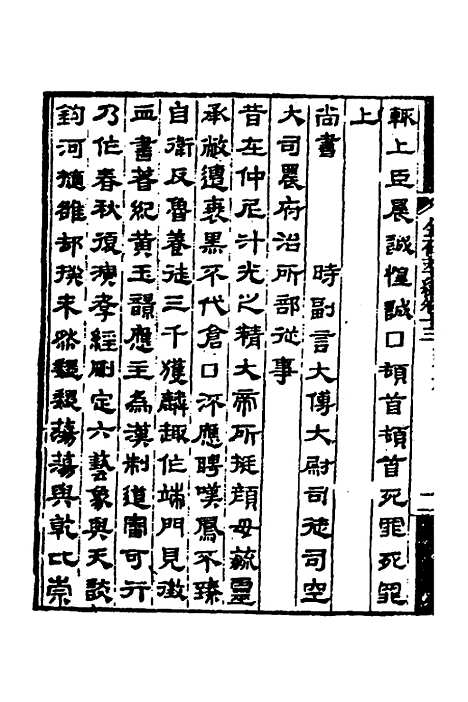 輒上臣晨誠惶誠口頓首頓首死罪死罪
上
尚書　時副言大傅大尉司徒司空
大司農府治所部從事
昔在仲尼汁光之精大帝所挺顏母毓靈
承敝遭衰黑不代倉口流應聘嘆鳳不臻
自衛反魯養徒三千獲麟趣作端門見徵
血書著紀黃玉韻應主為漢制道審可行
乃作春秋復演孝經刪定六藝象與天談
鈎河擿雒却揆未然魏魏蕩蕩與乾比崇
金石萃編卷十三